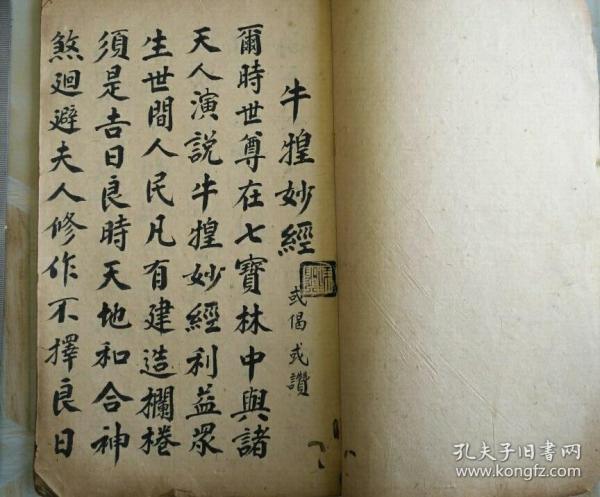 牛㹰妙經
或偈或讚
爾時世尊在七寶林中與諸
天人演說牛㹰妙經利益眾
生世間人民凡有建造欄棬
須是吉日良時天地和合神
煞廻避夫人修作不擇良日
孔夫子旧书网
www.kongfz.com